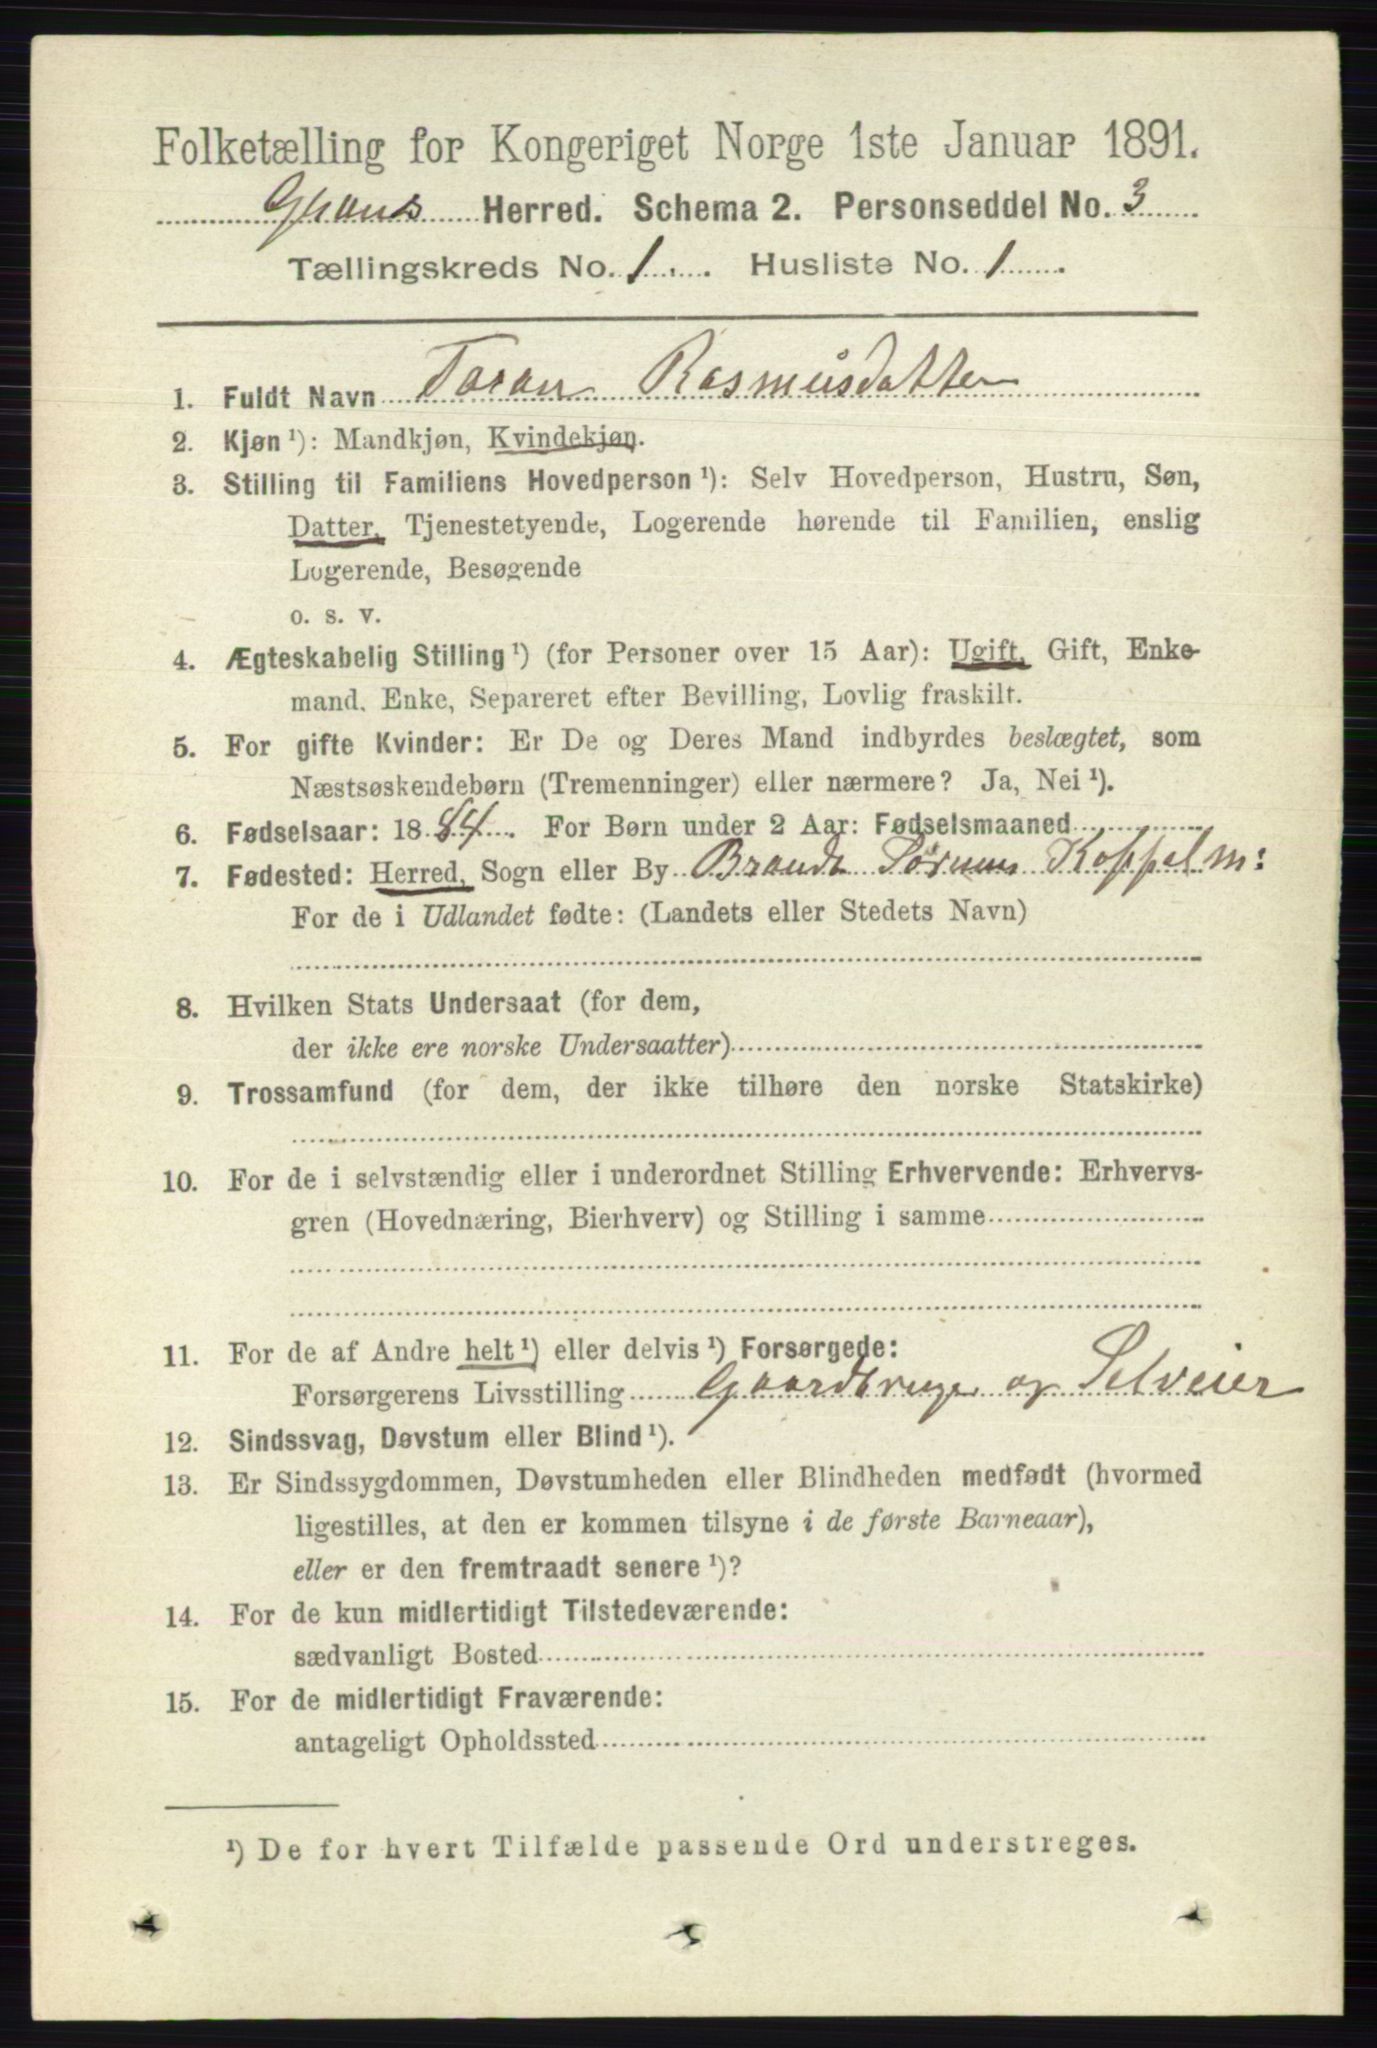 Folketælling for Kongeriget Norge 1ste Januar 1891.
Grans Herred. Schema 2. Personseddel No. 3
Tællingskreds No. 1 Husliste No. 1
1. Fuldt Navn Toran Rasmusdatter
2. Kjøn ¹): Mandkjøn, Kvindekjøn.
3. Stilling til Familiens Hovedperson ¹): Selv Hovedperson, Hustru, Søn,
Datter, Tjenestetyende, Logerende hørende til Familien, enslig
Logerende, Besøgende
o. s. v.
4. Ægteskabelig Stilling ¹) (for Personer over 15 Aar): Ugift, Gift, Enke-
mand, Enke, Separeret efter Bevilling, Lovlig fraskilt.
5. For gifte Kvinder: Er De og Deres Mand indbyrdes beslægtet, som
Næstsøskendebørn (Tremenninger) eller nærmere? Ja, Nei ¹).
6. Fødselsaar: 1884. For Børn under 2 Aar: Fødselsmaaned
7. Fødested: Herred, Sogn eller By Brandt
For de i Udlandet fødte: (Landets eller Stedets Navn)
8. Hvilken Stats Undersaat (for dem,
der ikke ere norske Undersaatter)
9. Trossamfund (for dem, der ikke tilhøre den norske Statskirke)
10. For de i selvstændig eller i underordnet Stilling Erhvervende: Erhvervs-
gren (Hovednæring, Bierhverv) og Stilling i samme
11. For de af Andre helt ¹) eller delvis ¹) Forsørgede:
Forsørgerens Livsstilling Gaardbruger og Selveier
12. Sindssvag, Døvstum eller Blind ¹).
13. Er Sindssygdommen, Døvstumheden eller Blindheden medfødt (hvormed
ligestilles, at den er kommen tilsyne i de første Barneaar),
eller er den fremtraadt senere ¹)?
14. For de kun midlertidigt Tilstedeværende:
sædvanligt Bosted
15. For de midlertidigt Fraværende:
antageligt Opholdssted
¹) De for hvert Tilfælde passende Ord understreges.